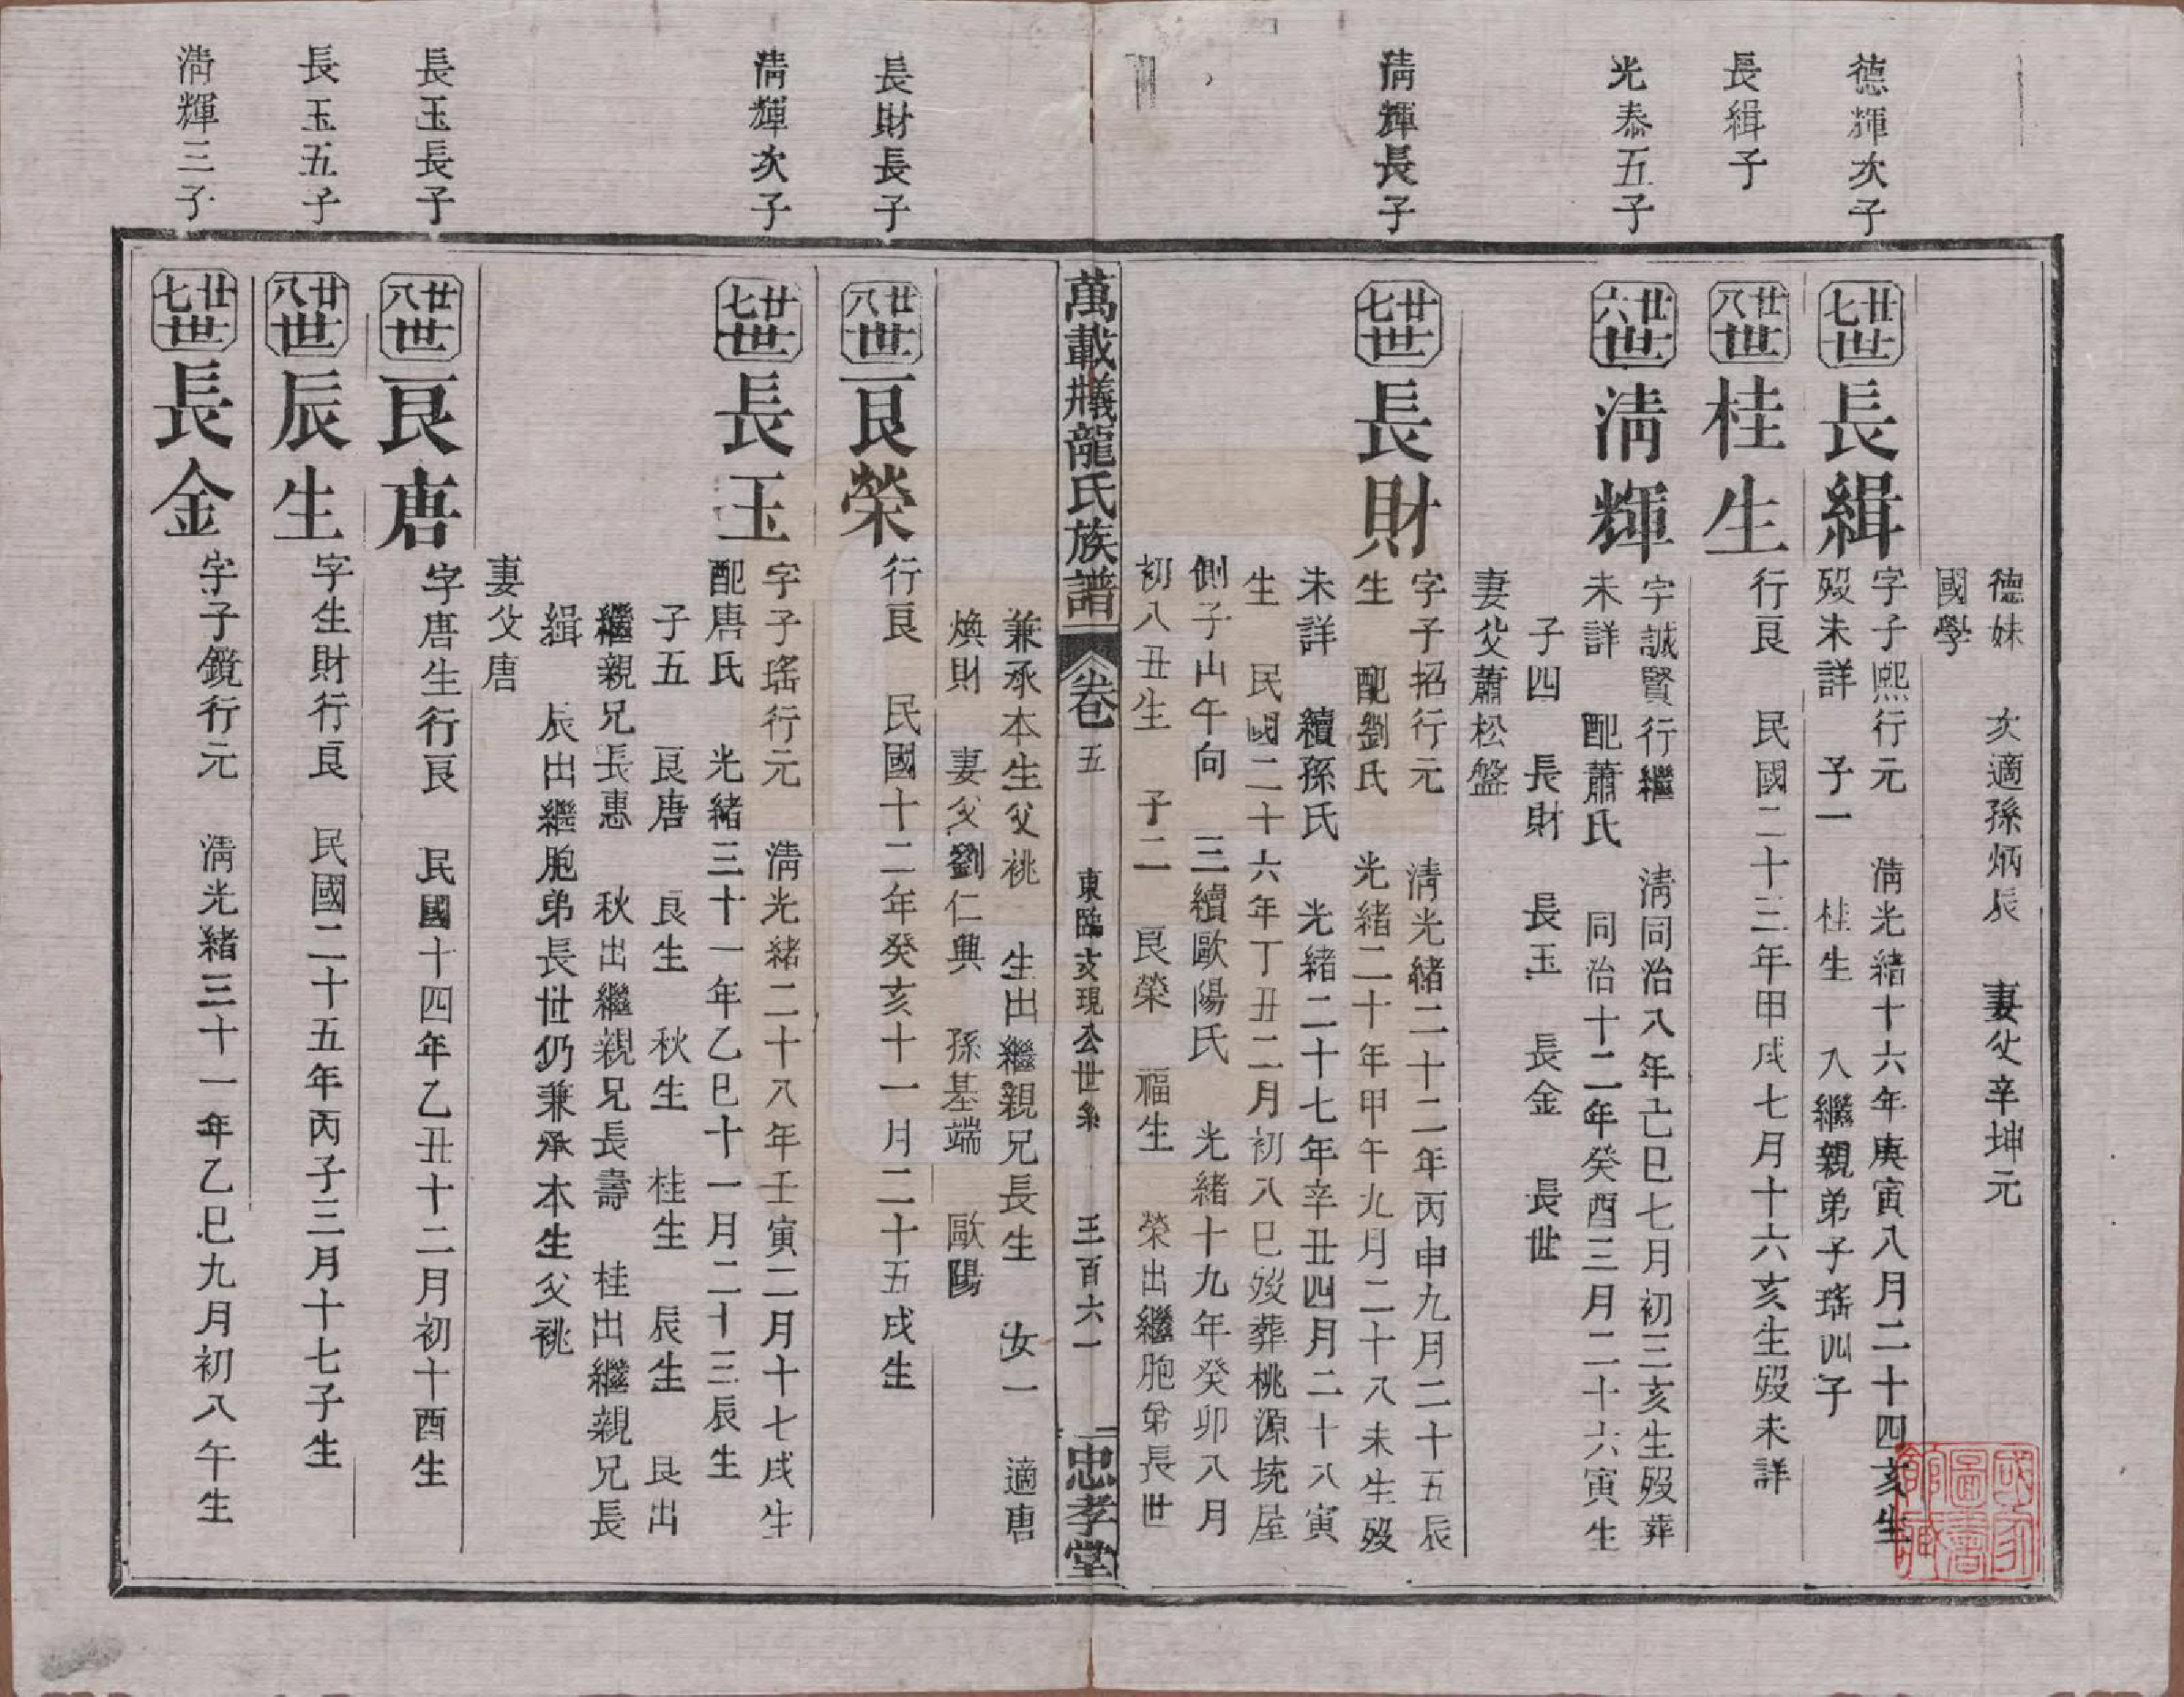 德妹　次適孫炳辰　妻父辛坤元
國學
德輝次子
廿七世
長緝
字子熙行元　淸光緒十六年庚寅八月二十四亥生
歿未詳　子一　桂生　入繼親弟子瑤四子
長緝子
廿八世
桂生
行良　民國二十三年甲戌七月十六亥生歿未詳
光泰五子
廿六世
淸輝
字誠賢行繼　淸同治八年己巳七月初三亥生歿葬
未詳　配蕭氏　同治十二年癸酉三月二十六寅生
子四　長財　長玉　長金　長世
妻父蕭松盤
淸輝長子
廿七世
長財
字子招行元　淸光緒二十二年丙申九月二十五辰
生　配劉氏　光緒二十年甲午九月二十八未生歿
未詳　續孫氏　光緒二十七年辛丑四月二十八寅
生　民國二十六年丁丑二月初八巳歿葬桃源垅屋
側子山午向　三續歐陽氏　光緒十九年癸卯八月
初八丑生　子二　良榮　福生　榮出繼胞弟長世
萬載㰕龍氏族譜
卷五　東臨支現公世系　三百六一　忠孝堂
兼承本生父祧　生出繼親兄長生　女一　適唐
煥財　妻父劉仁興　孫基端　歐陽
長財長子
廿八世
良榮
行良　民國十二年癸亥十一月二十五戌生
淸輝次子
廿七世
長玉
字子瑤行元　淸光緒二十八年壬寅二月十七戌生
配唐氏　光緒三十一年乙巳十一月二十三辰生
子五　良唐　良生　秋生　桂生　辰生　良出
繼親兄長惠　秋出繼親兄長壽　桂出繼親兄長
緝　辰出繼胞弟長世仍兼承本生父祧
妻父唐
長玉長子
廿八世
良唐
字唐生行良　民國十四年乙丑十二月初十酉生
長玉五子
廿八世
辰生
字生財行良　民國二十五年丙子三月十七子生
淸輝三子
廿七世
長金
字子鏡行元　淸光緒三十一年乙巳九月初八午生
國家圖書館藏